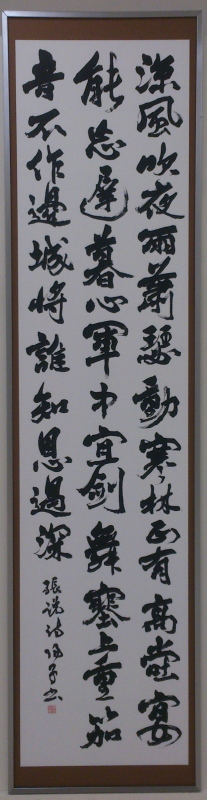 涼風吹夜雨蕭瑟動寒林正有高堂宴
能忘遲暮心軍中宜劍舞塞上重笳
音不作邊城將誰知恩遇深
張説詩